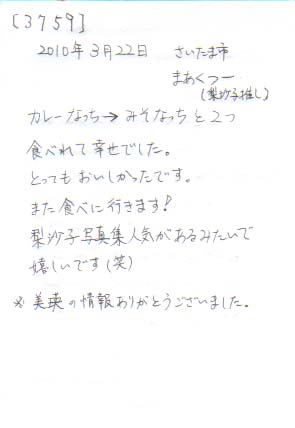 [3759]
2010年3月22日 さいたま市
まあくつー
(梨沙子推し)
カレーなっち→みそなっちと2つ
食べれて幸せでした。
とってもおいしかったです。
また食べに行きます!
梨沙子写真集人気があるみたいで
嬉しいです(笑)
※美瑛の情報ありがとうございました。